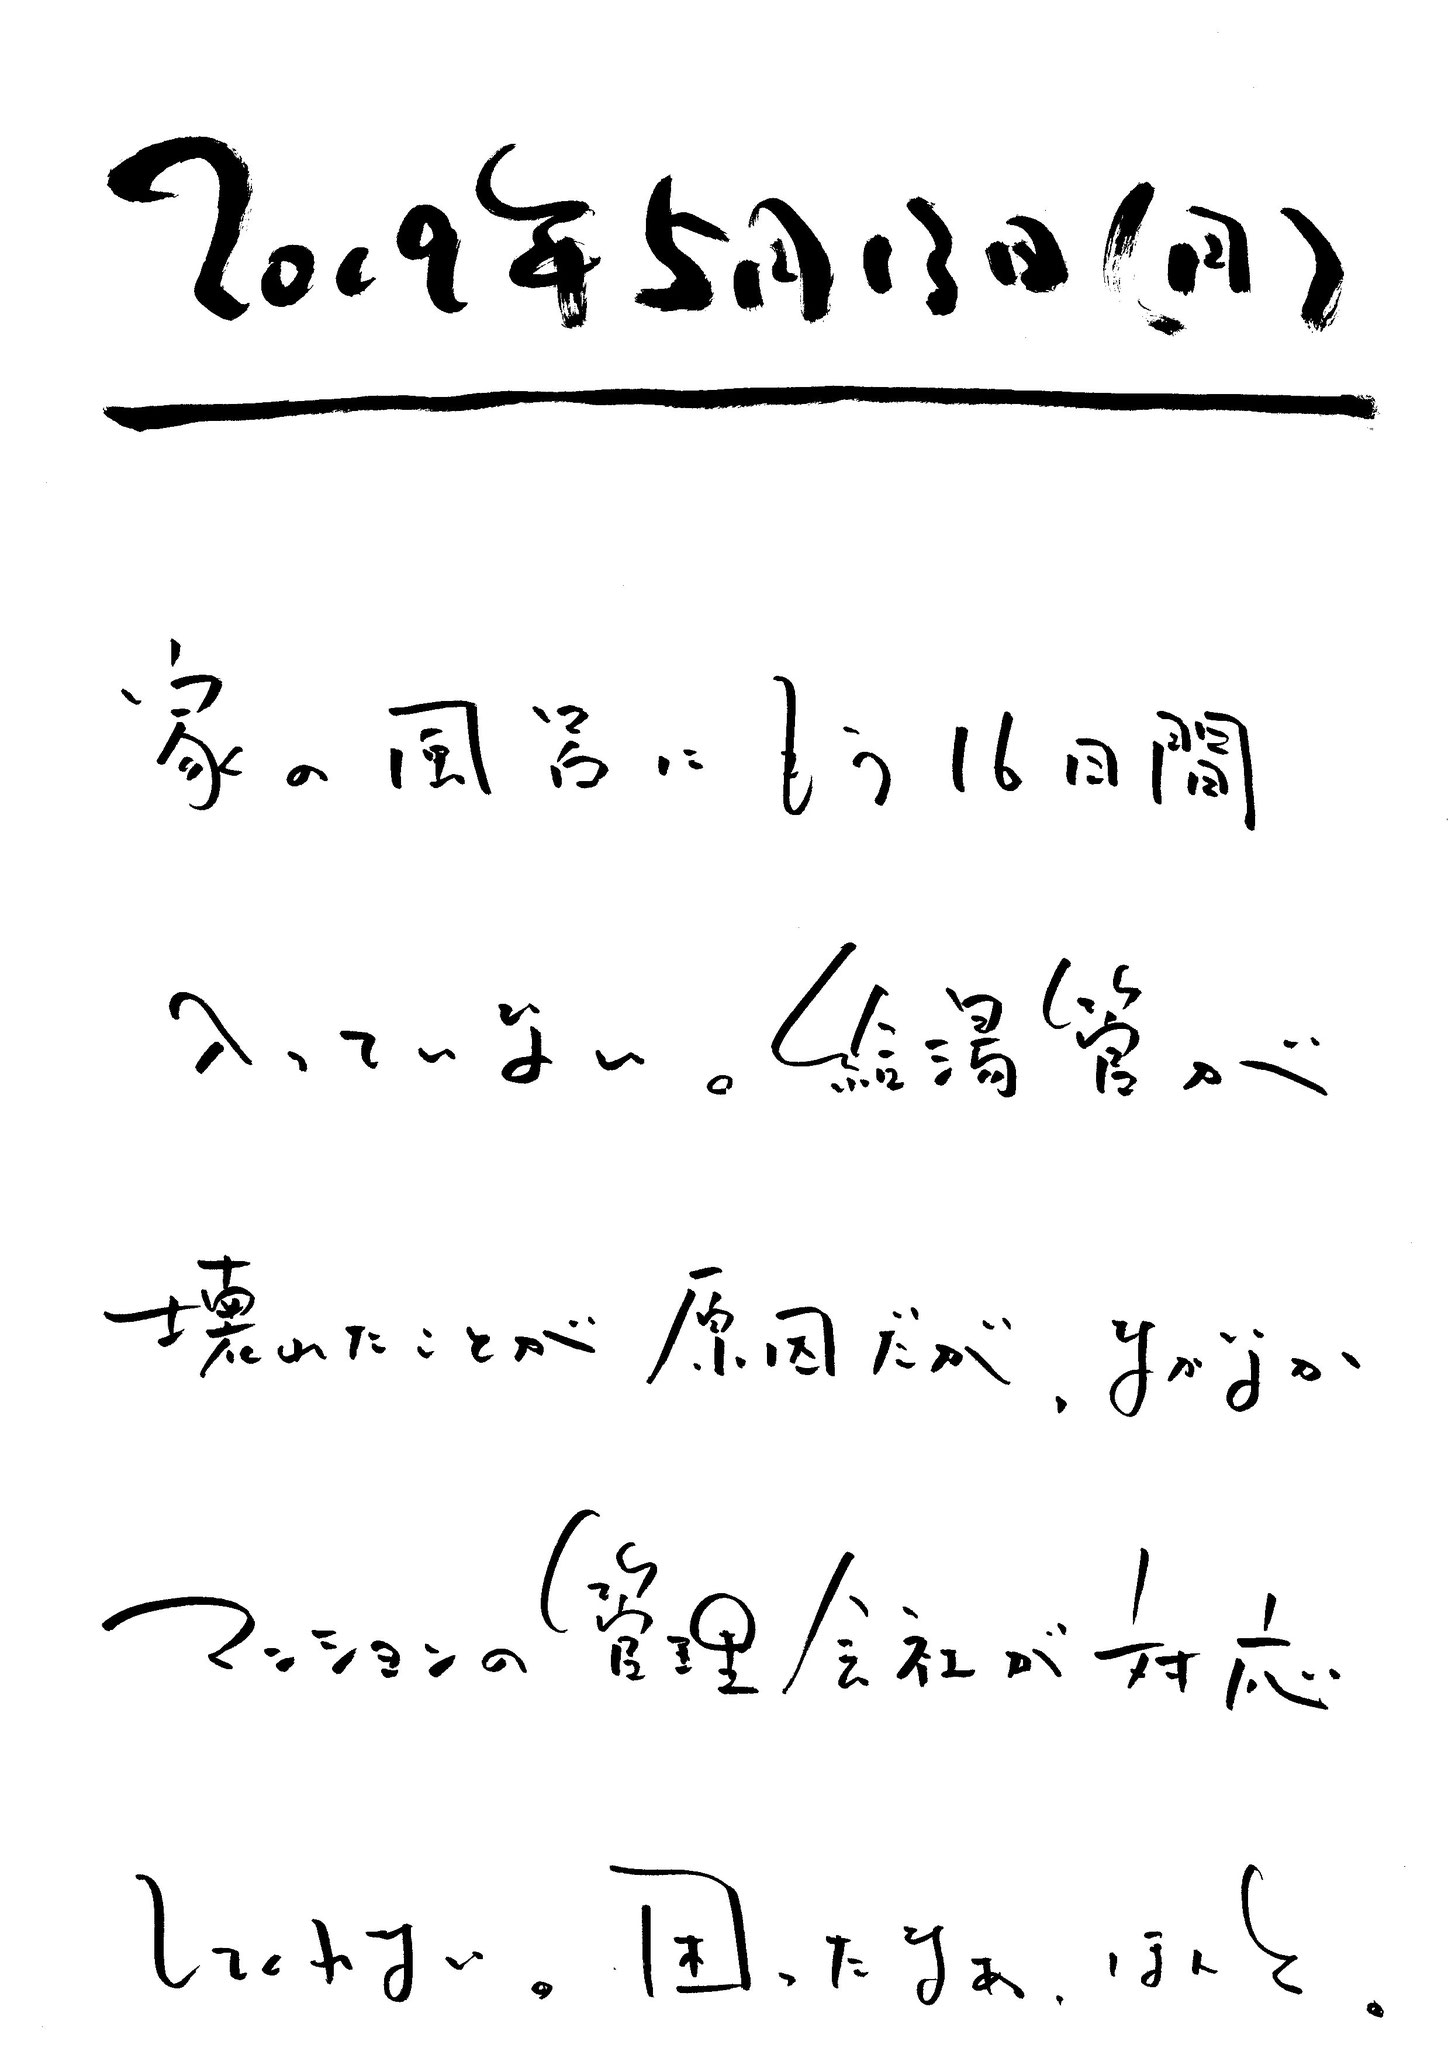 2019年5月13日(月)
家の風呂にもう16日間
入っていない。給湯管が
壊れたことが原因だが、なかなか
マンションの管理会社が対応
してくれない。困ったなぁ、ほんと。